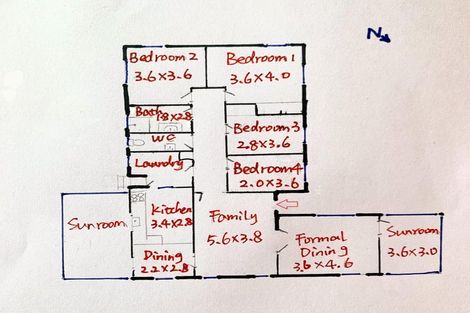 N
Bedroom 2
3.6 x 3.6
Bedroom 1
3.6 x 4.0
Bath
1.8 x 2.8
WC
Laundry
Bedroom 3
2.8 x 3.6
Bedroom 4
2.0 x 3.6
Sunroom
Kitchen
3.4 x 2.8
Family
5.6 x 3.8
Dining
2.2 x 2.8
Formal
Dining
3.6 x 4.6
Sunroom
3.6 x 3.0